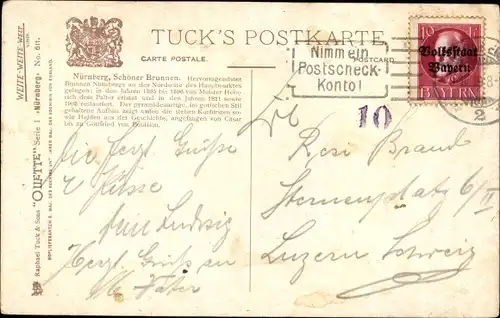 TUCK'S POSTKARTE
CARTE POSTALE.
POSTCARD
Nimm ein
Postscheck-
Konto!
10
Volksstaat
Bayern
BAYERN
2
10
Nürnberg, Schöner Brunnen. Hervorragendster
Brunnen Nürnbergs an der Nordseite des Hauptmarktes
gelegen; in den Jahren 1385 bis 1396 von Meister Hein-
rich, dem Palier erbaut und in den Jahren 1821 sowie
1902 restauriert. Der pyramidenartige, im gotischen Stil
gehaltene Aufbau zeigt unten die sieben Kurfürsten so-
wie Helden aus der Geschichte, angefangen von Cäsar
bis zu Gottfried von Bouillon.
WEITE-WEITE-WELT
Raphael Tuck & Sons "OILETTE" Serie „Nürnberg" No. 611.
Die herzl. Grüsse
Küsse
Ludwig
Herzl. Gruß
Vater
Rosi Brand
Sternenplatz 6/II
Luzern Schweiz